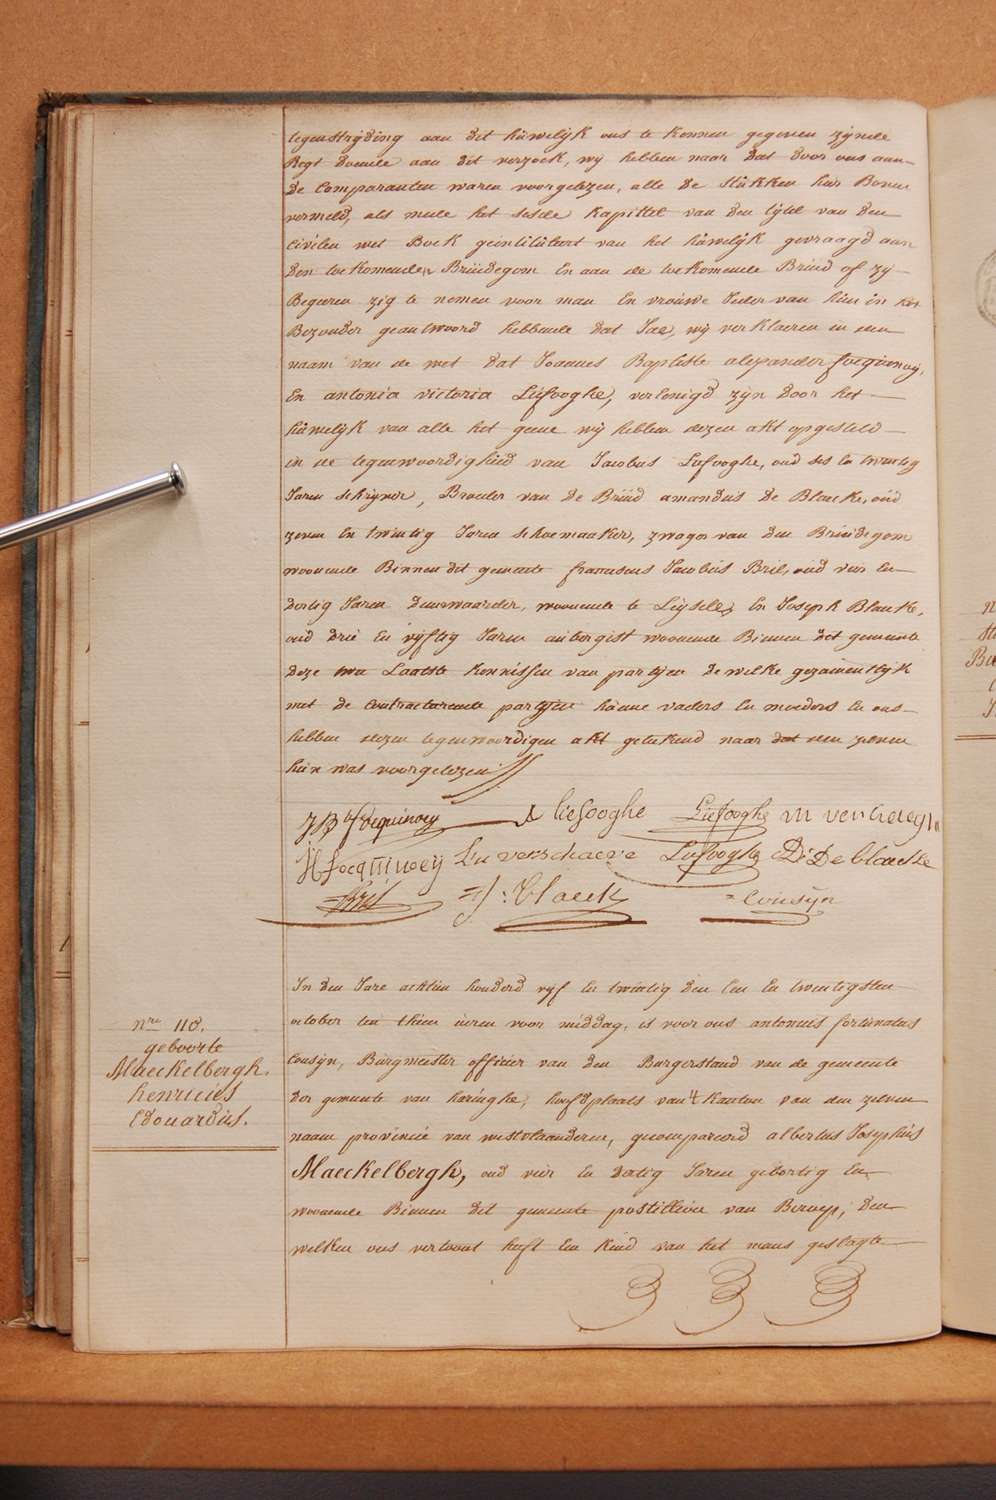 tegenstrijding aan dit húwelijk ons te konnen gegeven zijnde
Regt doende aan dit verzoek, wij hebben naar dat door ons aan
de comparanten waren voorgelezen, alle de stúkken hier Boven
vermeld, als mede het sesde kapittel van den tijtel van den
civilen wet Boek geintitúleert van het húwelijk gevraagd aan
den toekomenden Brúidegom En aan de toekomende Brúid of zij
Begeeren zig te nemen voor man En vrouwe Ieder van hún in het
Bezonder geantwoord hebbende dat Jae, wij verklaeren in den
naam van de wet dat Joannes Baptiste alexander focquinoij,
En antonia victoria Liefooghe, verEenigd zijn door het
húwelijk van alle het geene wij hebben dezen akt opgesteld
in de tegenwoordigheid van Jacobus Liefooghe, oud ses En twintig
Jaren schrijver, Broeder van de Brúid amandus de Blacke, oúd
zeven En twintig Jaren schoemaaker, zwager van den Brúidegom
woonende Binnen dit gemeente franciscus Jacobús Bril, oúd vier En
dertig Jaren deurwaarder, woonende te Leijsele, En Joseph Blancke,
oud drie En vijftig Jaren aubergist woonende Binnen dit gemeente
deze twee Laatste kennissen van partijen de welke gezamentlijk
met de contracterende partijen húnne vaders En moeders En ons
hebben dezen tegenwoordigen akt geteekend naar dat den zelven
hún was voorgelezen
J B focquinoey A liefooghe Liefooghe m vercleeyn
H focquinoeij L'u verschaeve Liefooghe D: De blaeke
Bril J: Blaeck Cousijn
In den Jare achtien honderd vijf En twintig den Een En twentigsten
october ten thien úeren voor middag, is voor ons antonius fortúnatus
Cousijn, Búrgmeister officier van den Burgerstand van de gemeente
der gemeente van haringhe, hoofdplaats van 't kanton van den zelven
naam provincie van westvlaanderen, gecompareerd albertus Josephús
Maeckelbergh, oud vier En dertig Jaren geboortig En
woonende Binnen dit gemeente postillion van Beroep; den
welken ons vertoont heeft Een kind van het mans geslagte
nro 118.
geboorte
Maeckelbergh.
henricús
Edouardús.